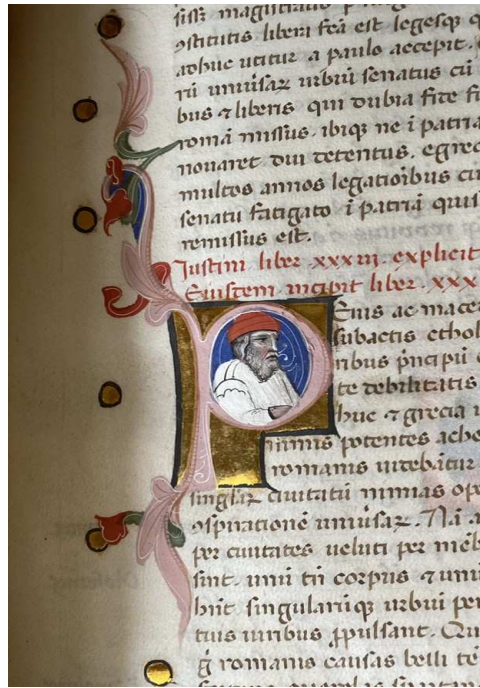 sissꝫ magistratib
ꝯstitutis liberi fcā est legesqꝫ q
adhuc utitur a paulo accepit.
rū uniusaꝝ urbiū senatus cū
bus ⁊ liberis qui dubia fide f
romā missus. ibiqꝫ ne ī patria
nouaret diu detentus. egre
multos annos legatioibus ciu
senatu fatigato ī patriā quis
remissus est.
Justini liber xxxiii explicit
Eiusdem incipit liber xxx
PEnis ac mace
subactis ethol
nibus p̄ncipū c
te debilitatis
huc ⁊ grecia u
nimis potentes ache
romanis uidebātur
singlaꝝ ciuitatū nimias ope
ꝯspirationē uniusaꝝ. Nā a
per ciuitates ueluti per mēb
sint. unū tn̄ corpus ⁊ unū
hn̄t singulariūqꝫ urbiū per
tuis uiribus ꝓpulsant. Qu
g̊ romanis causas belli te